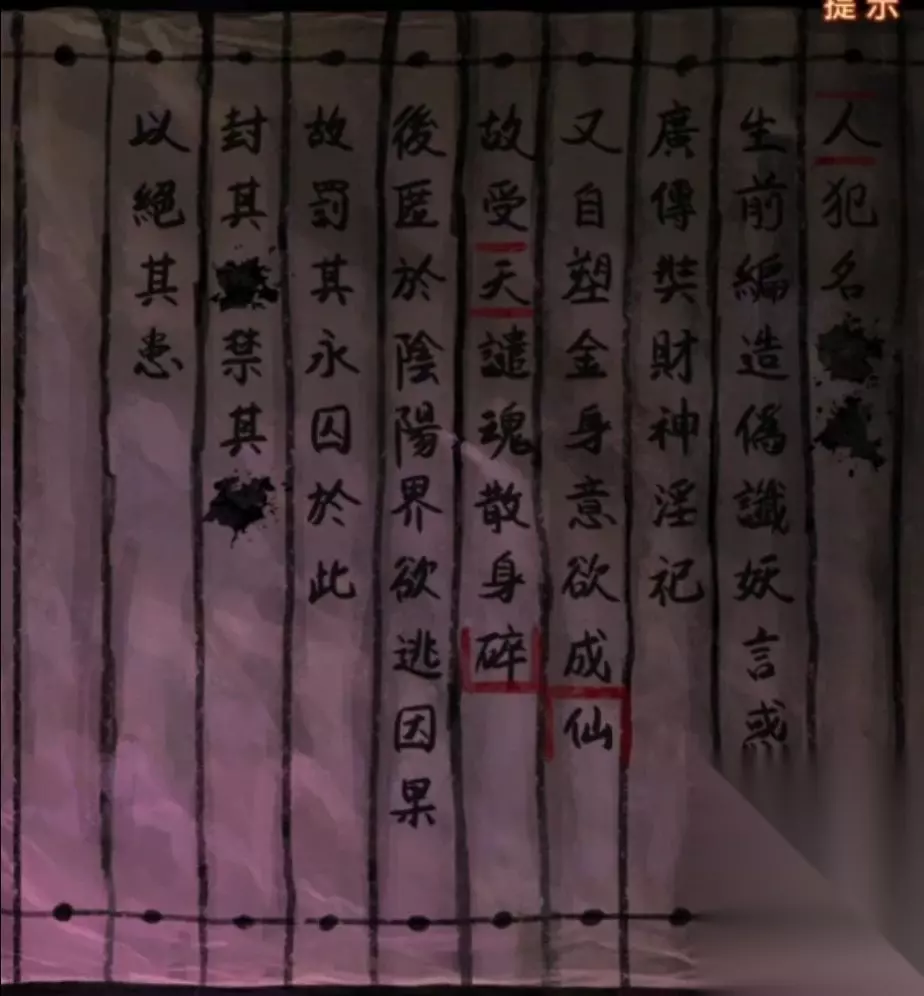 提示
人犯名
生前編造偽讖妖言惑
廣傳奘財神淫祀
又自塑金身意欲成仙
故受天譴魂散身碎
後匿於陰陽界欲逃因果
故罰其永囚於此
封其禁其
以絕其患